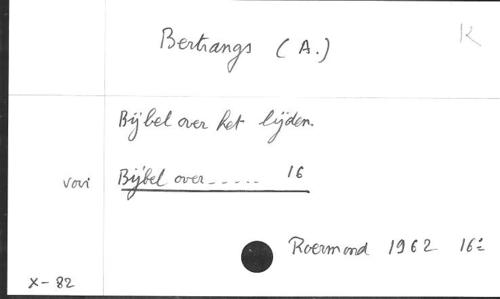 K
Bertrangs (A.)
Bijbel over het lijden.
voir Bijbel over_ _ _ _ _ 16
Roermond 1962 16°
X-82